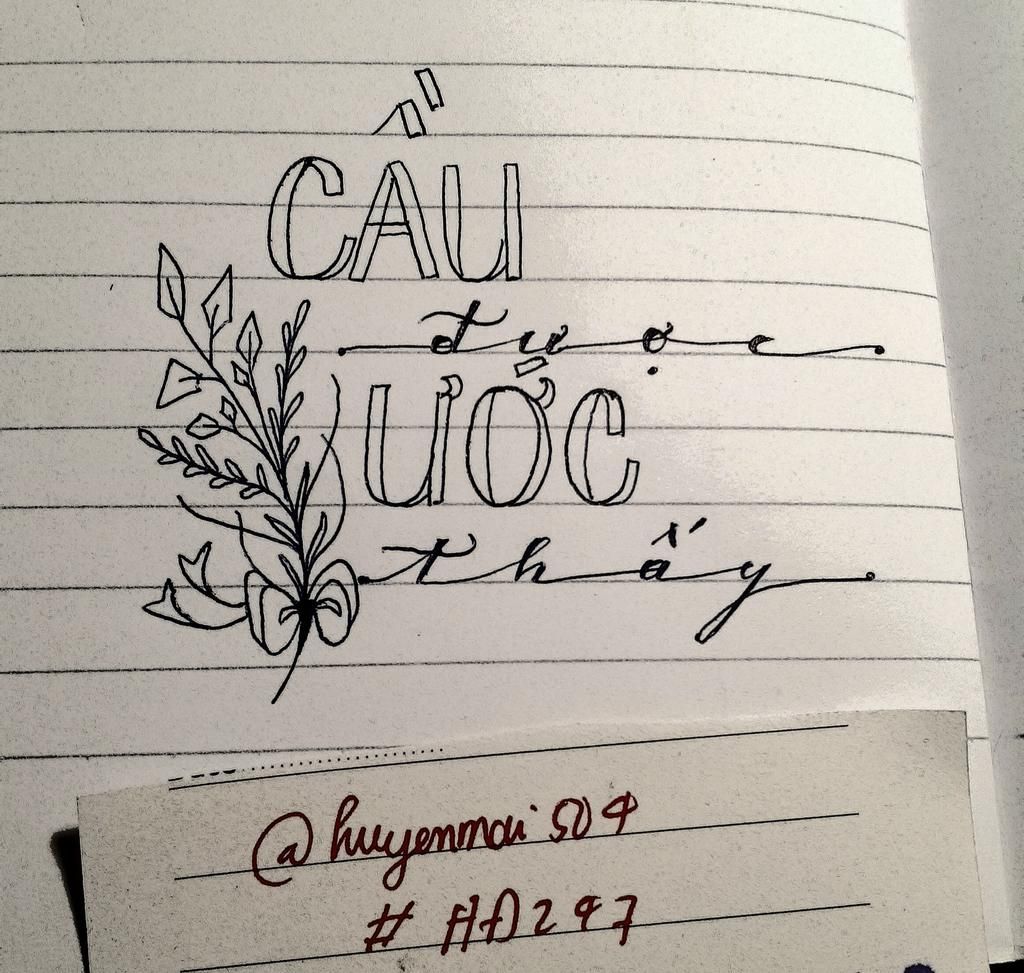 CẦU
được
ƯỚC
thấy
@huyenmai504
# HĐ247